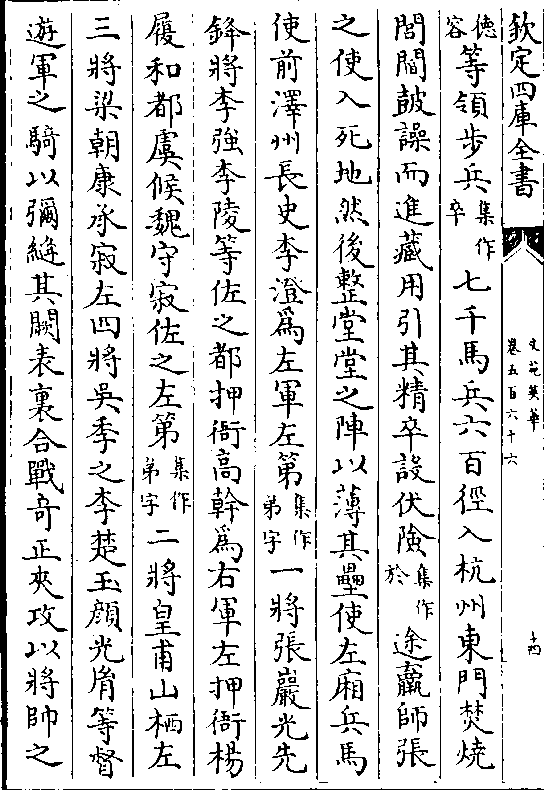 欽定四庫全書
文苑英華
卷五百六十六
十四
德容等領步兵集作卒七千馬兵六百徑入杭州東門焚燒
閭閻鼓譟而進藏用引其精卒設伏險集作於途羸師張
之使入死地然後整堂堂之陣以薄其壘使左廂兵馬
使前澤州長史李澄爲左軍左第集作弟字一將張巖光先
鋒將李強李陵等佐之都押衙高幹爲右軍左押衙楊
履和都虞候魏守寂佐之左第集作弟字二將皇甫山栖左
三將梁朝康承寂左四將吳季之李楚玉顔光㣧等督
遊軍之騎以彌縫其闕表裏合戰奇正夾攻以將帥之